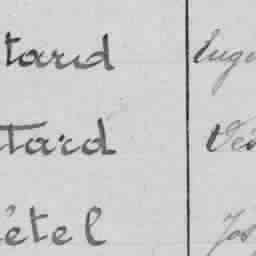 tard Eug
tard Vé
étel Jos